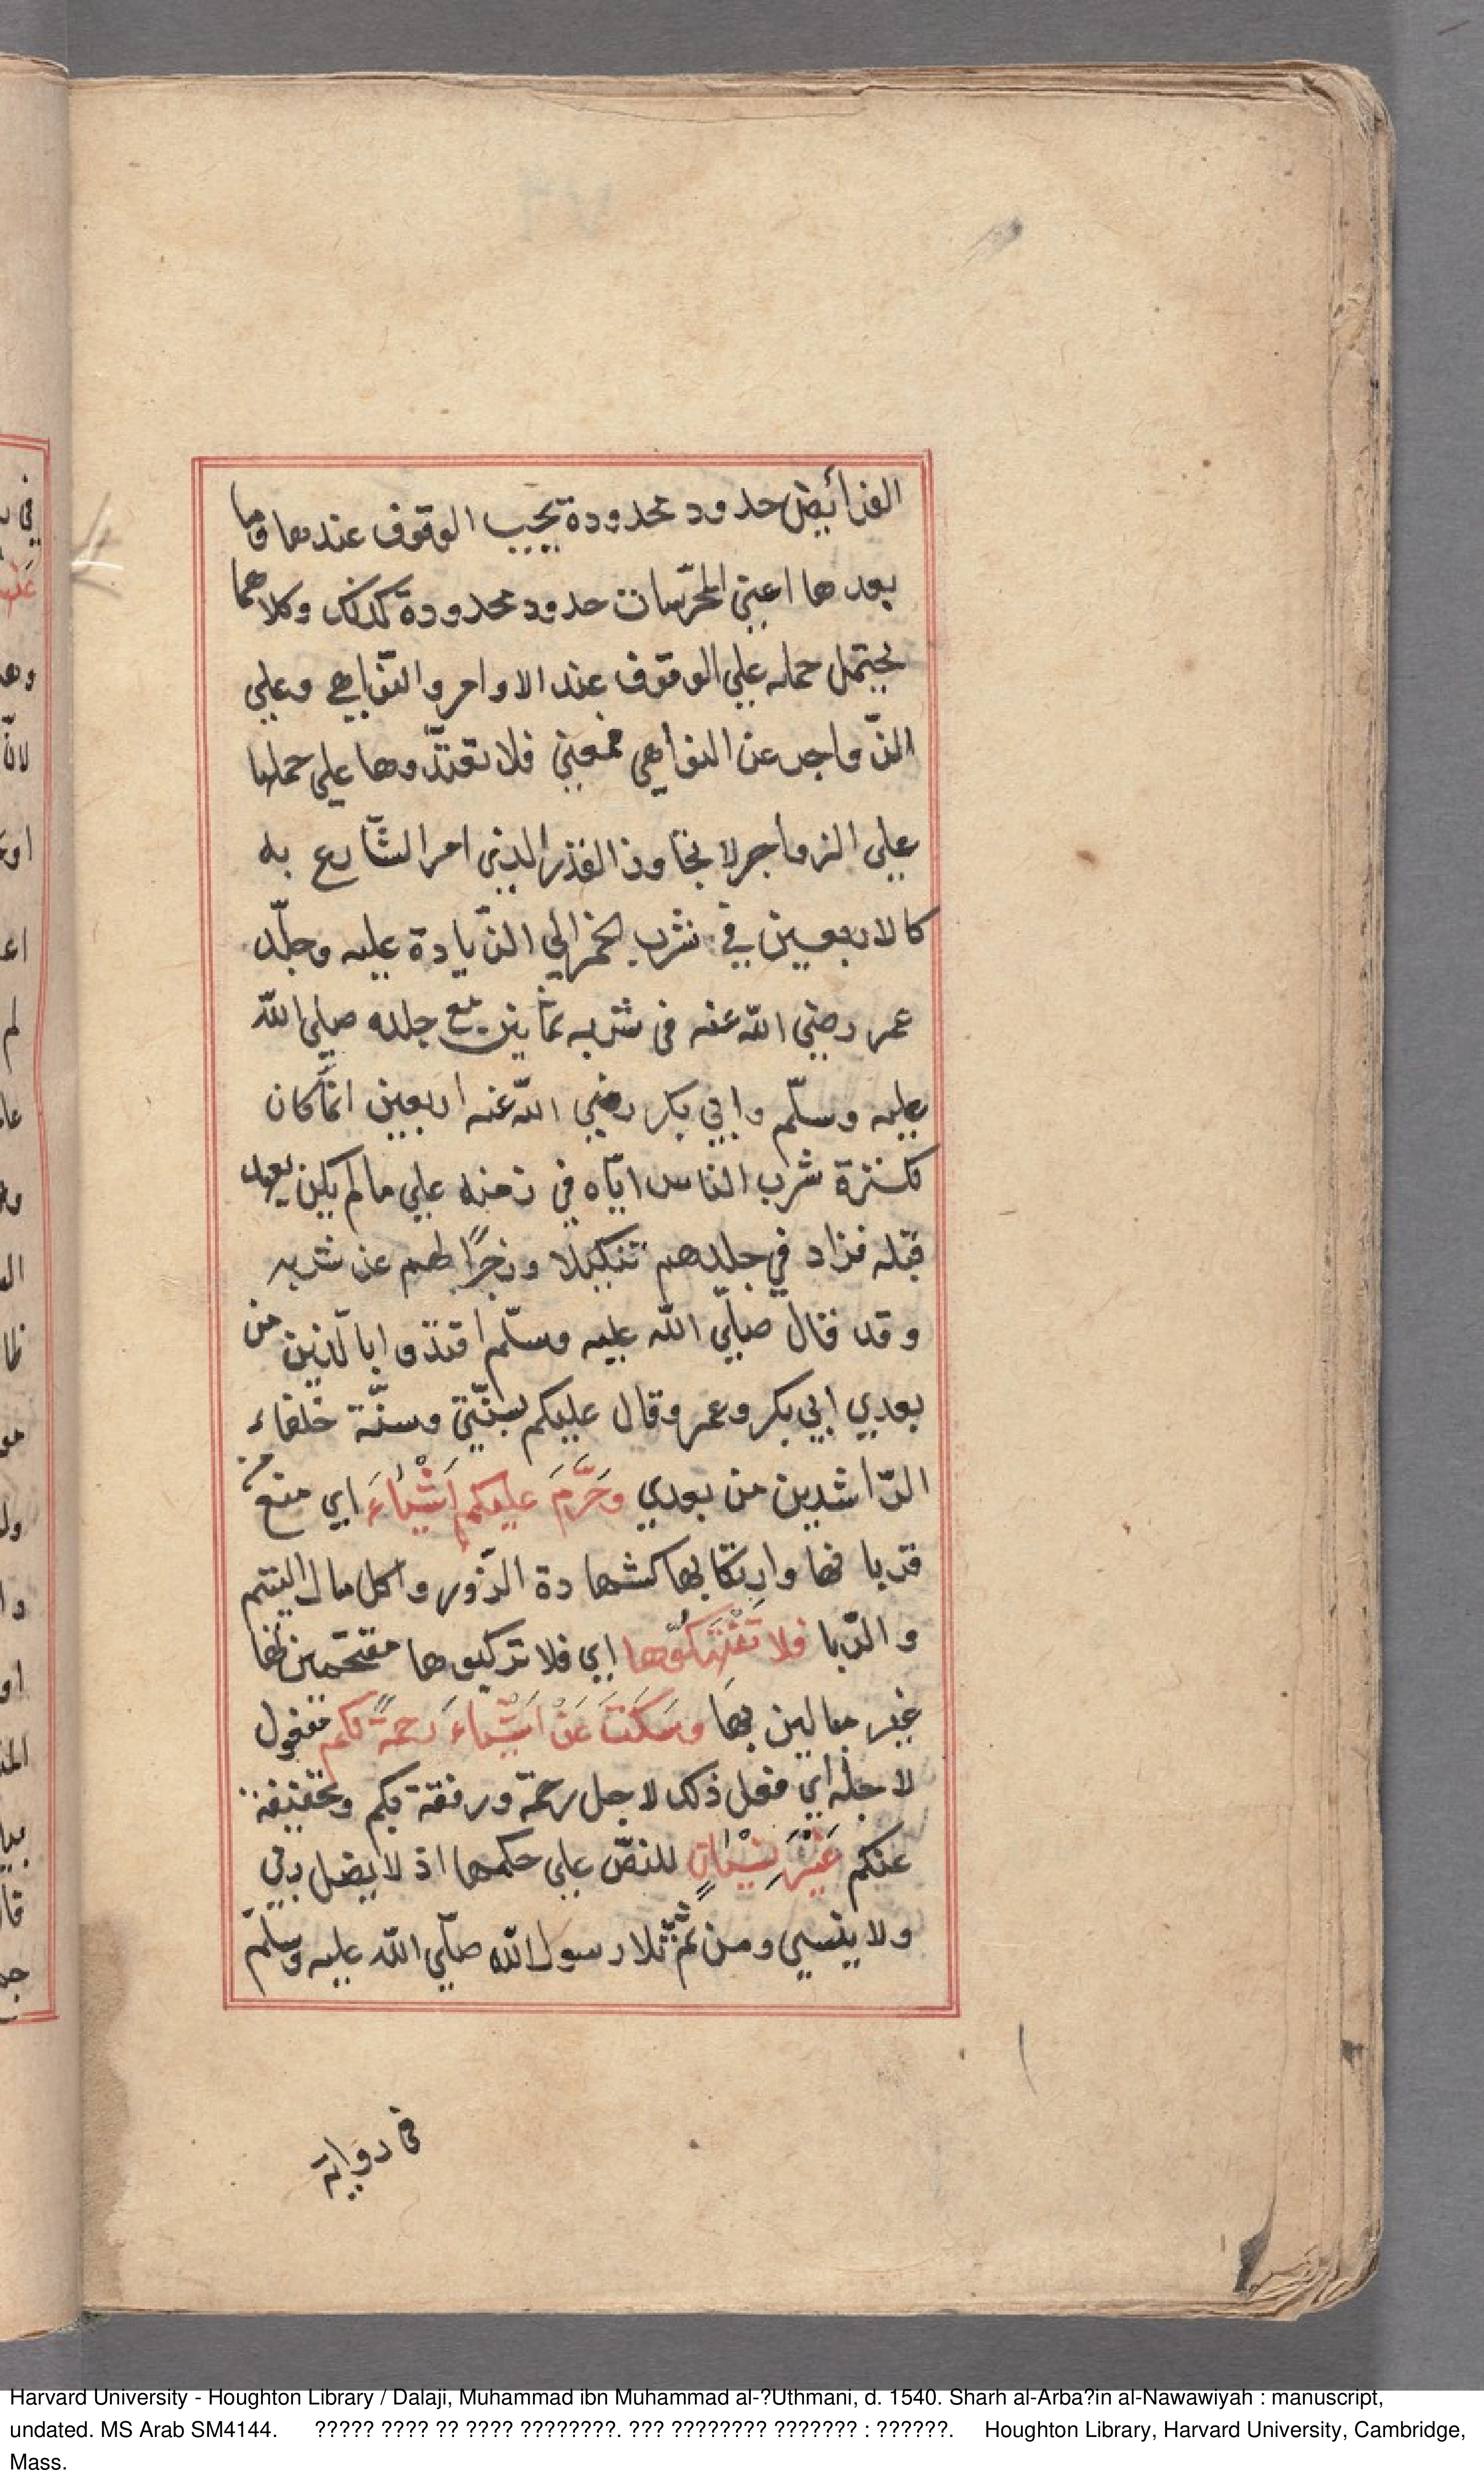 الفرائض حدود محدودة يجب الوقوف عندها وما
بعدها اعني المحرّمات حدود محدودة كذلك وكلاهما
يحتمل حمله علي الوقوف عند الاوامر والنّواهي وعلي
الزّواجر عن النواهي فمعني فلا تعتدّوها علي حملها
علي الزواجر لا تجاوز القدر الذي امر الشّارع به
كالاربعين في شرب الخمر الي الزّيادة عليه وجلّد
عمر رضي اللّه عنه في شربه ثمانين مع جلده صلي اللّه
عليه وسلّم وابي بكر رضي اللّه عنه اربعين انّما كان
لكثرة شرب الناس ايّاه في زمنه علي ما لم يكن يعهد
قبله فزاد في جلدهم تنكيلا وزجرًا لهم عن شربه
وقد قال صلّي اللّه عليه وسلّم اقتدوا بالّذين من
بعدي ابي بكر وعمر وقال عليكم بسنّتي وسنّة خلفاء
الرّاشدين من بعدي وَحَرَّمَ عليكم اَشْيٰاءَ اي منع
قربانها وارتكابها كشهادة الزّور واكل مال اليتيم
والرّبا فلا تَنْتَهِكُوها اي فلا تركبوها مقتحمين لها
غير مبالين بها وَسَكَتَ عَنْ اَشْيٰاءَ رَحمةً لكم مفعول
لاجله اي فعل ذلك لاجل رحمة ورفقة بكم وتخفيفة
عنكم غَيْرَ نِسْيٰانٍ للنصّ علي حكمها اذ لا يضل ربي
ولا ينسي ومن ثمّ تلا رسول اللّه صلّي اللّه عليه وسلّم
في رواية
Harvard University - Houghton Library / Dalaji, Muhammad ibn Muhammad al-?Uthmani, d. 1540. Sharh al-Arba?in al-Nawawiyah : manuscript,
undated. MS Arab SM4144. ????? ???? ?? ???? ????????. ??? ???????? ??????? : ??????. Houghton Library, Harvard University, Cambridge,
Mass.